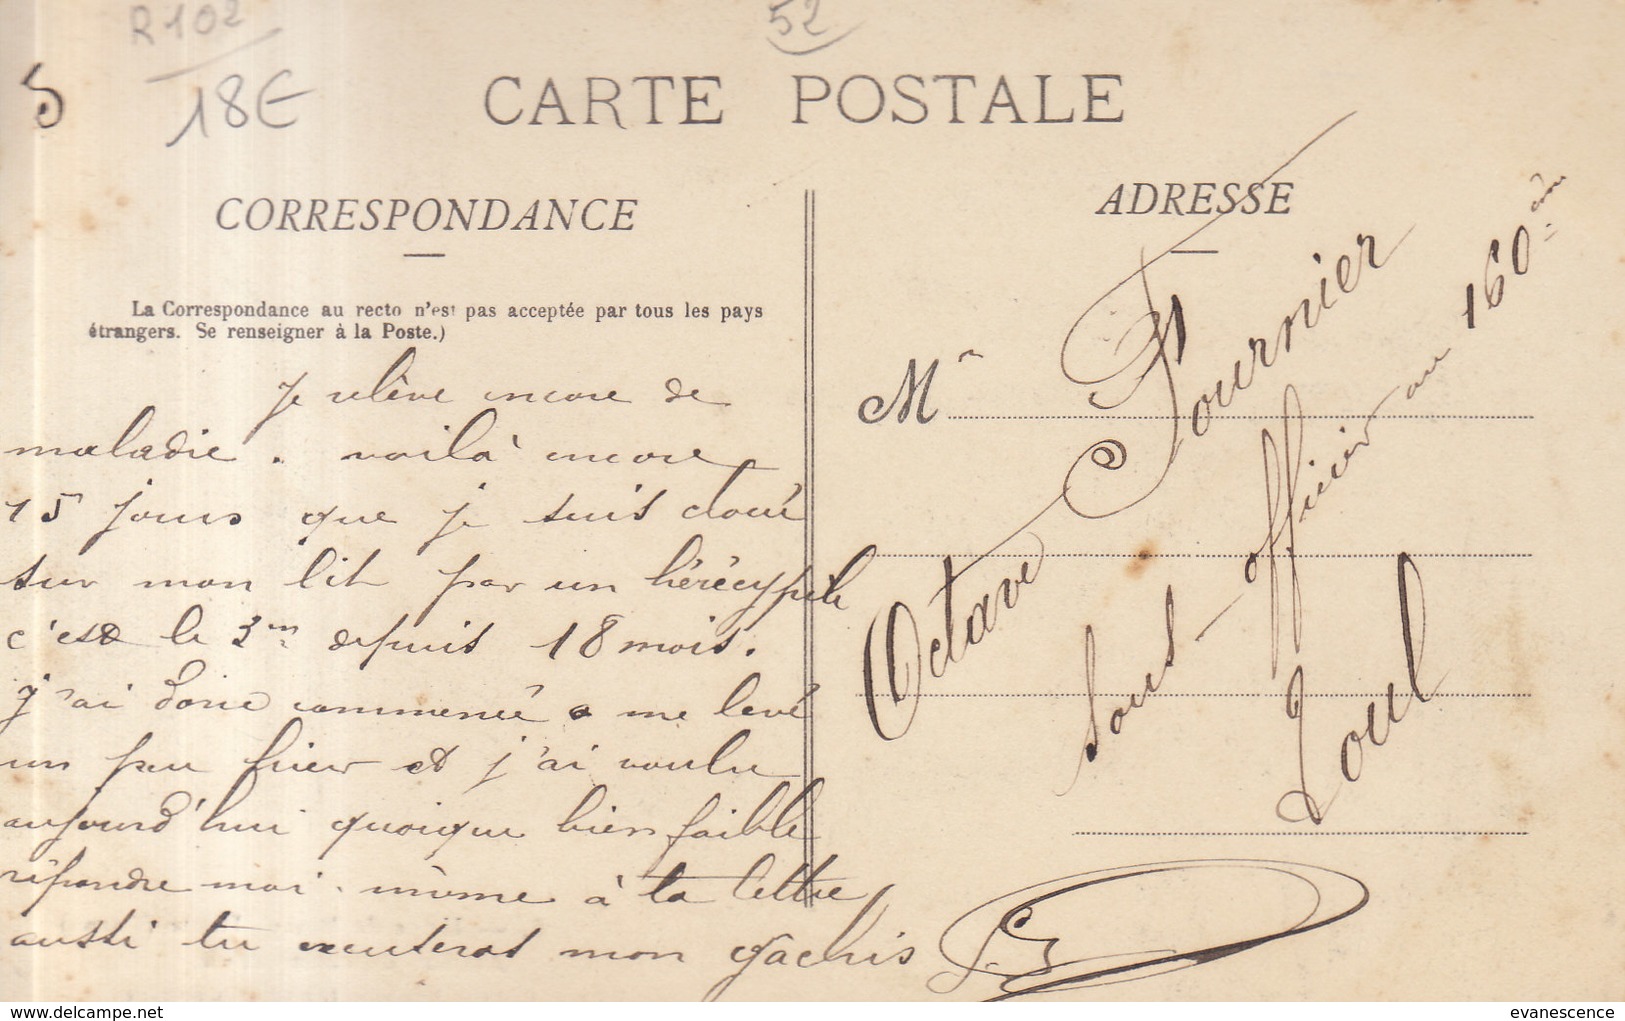 R102
52
18€
CARTE POSTALE
CORRESPONDANCE
ADRESSE
La Correspondance au recto n'est pas acceptée par tous les pays
étrangers. Se renseigner à la Poste.)
Je relève encore de
maladie. voilà encore
15 jours que je suis cloué
sur mon lit par un hérécypèle
c'est le 3m depuis 18 mois.
j'ai donc commencé a me levé
un peu hier et j'ai voulu
aujourd'hui quoique bien faible
répondre moi-même à ta lettre
aussi tu excuteras mon gachis
M
Octave Fournier
Sous-officier au 160
Toul